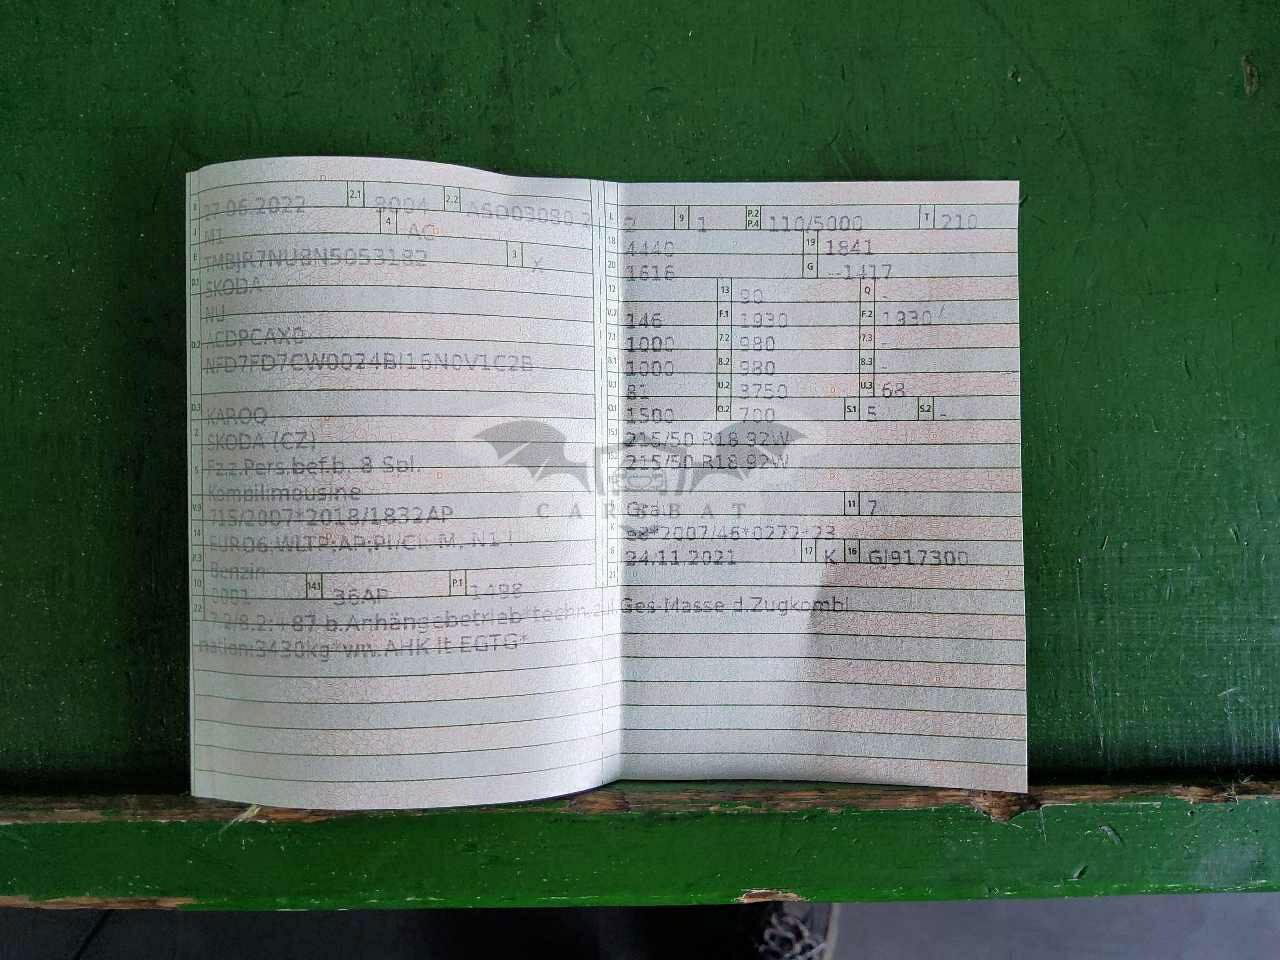 B 27.06.2022 2.1 8004 2.2
J M1 4 AC
E TMBJR7NU8N5053182 3 X
D.1 SKODA
NU
D.2 ACDPCAX0
NFD7FD7CW0024BI16N0V1C2B
D.3 KAROQ
2 SKODA (CZ)
5 Fz.z.Pers.bef.b. 8 Spl.
Kombilimousine
V.9 715/2007*2018/1832AP
14 EURO6,WLTP,AP;PI/CI M, N1 I
P.3 Benzin
10 0001 14.1 36AP P.1 1498
22 7.2/8.2:+87 b.Anhängebetrieb*techn.zul
nation:3430kg*wm.AHK lt EGTG*
L 2 9 1 P.2 P.4 110/5000 T 210
18 4440 19 1841
20 1616 G --1417
12 - 13 90 Q -
V.7 146 F.1 1930 F.2 1930
7.1 1000 7.2 980 7.3 -
8.1 1000 8.2 980 8.3 -
U.1 81 U.2 3750 U.3 68
O.1 1500 O.2 700 S.1 5 S.2 -
15.1 215/50 R18 92W
215/50 R18 92W
CARBAT
11 7
K e8*2007/46*0272*23
6 24.11.2021 17 K 16 GJ917300
21
Ges-Masse d.Zugkombi